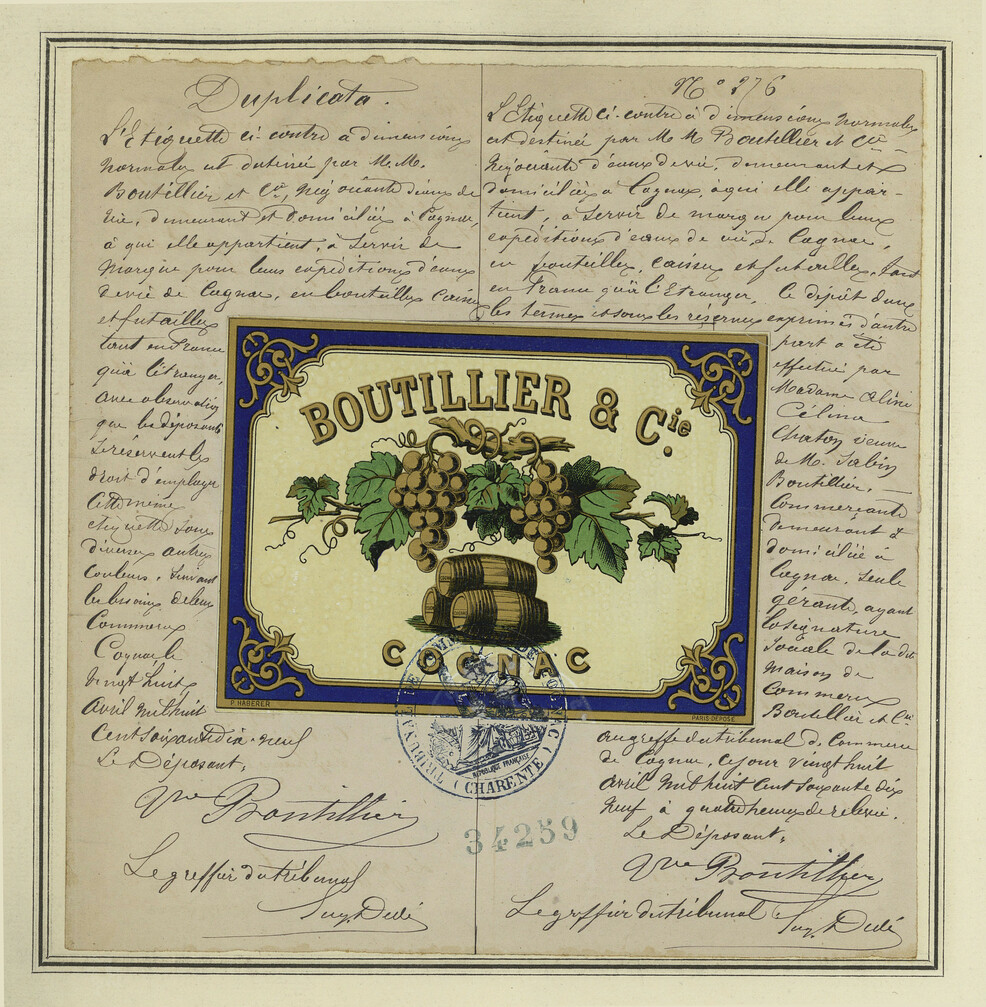 Duplicata.
L'Etiquette ci-contre a dimensions
normales est destinée par M.M.
Boutillier et Cie, négociants d'eaux de
vie, demeurant et domiciliés à Cognac,
à qui elle appartient, à servir de
marque pour leurs expéditions d'eaux
de vie de Cognac, en bouteilles, caisses
et futailles
tant en France
qu'à l'étranger,
avec observation
que les déposants
se réservent le
droit d'employer
cette même
étiquette sous
diverses autres
couleurs, suivant
les besoins de leur
Commerce
Cognac le
vingt huit
avril mil huit
cent soixante dix-neuf
Le Déposant,
Vve Boutillier
Le greffier du tribunal
Dédé
No 276
L'Etiquette ci-contre à dimensions normales
est destinée par M M Boutillier et Cie
négociants d'eaux de vie, demeurant et
domiciliés à Cognac, à qui elle appar-
tient, à servir de marque pour leurs
expéditions d'eaux de vie de Cognac,
en bouteilles, caisses et futailles, tant
en France qu'à l'Etranger. Ce dépôt dans
les termes et sous les réserves exprimés d'autre
part a été
effectué par
Madame Aline
Célina
Chaton veuve
de M. Sabin
Boutillier,
Commerçante
demeurant et
domiciliée à
Cognac, seule
gérante, ayant
la signature
sociale de la dite
maison de
Commerce
Boutillier et Cie
au greffe du tribunal de Commerce
de Cognac, ce jour vingt huit
avril mil huit cent soixante dix
neuf à quatre heures de relevée.
Le Déposant,
Vve Boutillier
Le greffier du tribunal
Dédé
BOUTILLIER & Cie.
COGNAC
P. HABERER
PARIS DÉPOSÉ
TRIBUNAL DE COMMERCE DE COGNAC
RÉPUBLIQUE FRANÇAISE
(CHARENTE)
34259